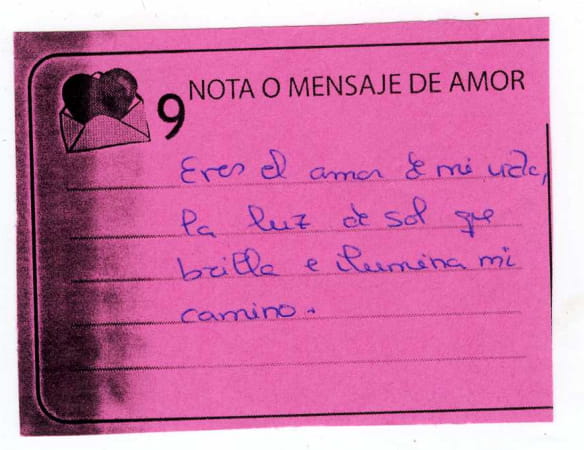 9 NOTA O MENSAJE DE AMOR
Eres el amor de mi vida,
la luz de sol que
brilla e ilumina mi
camino.